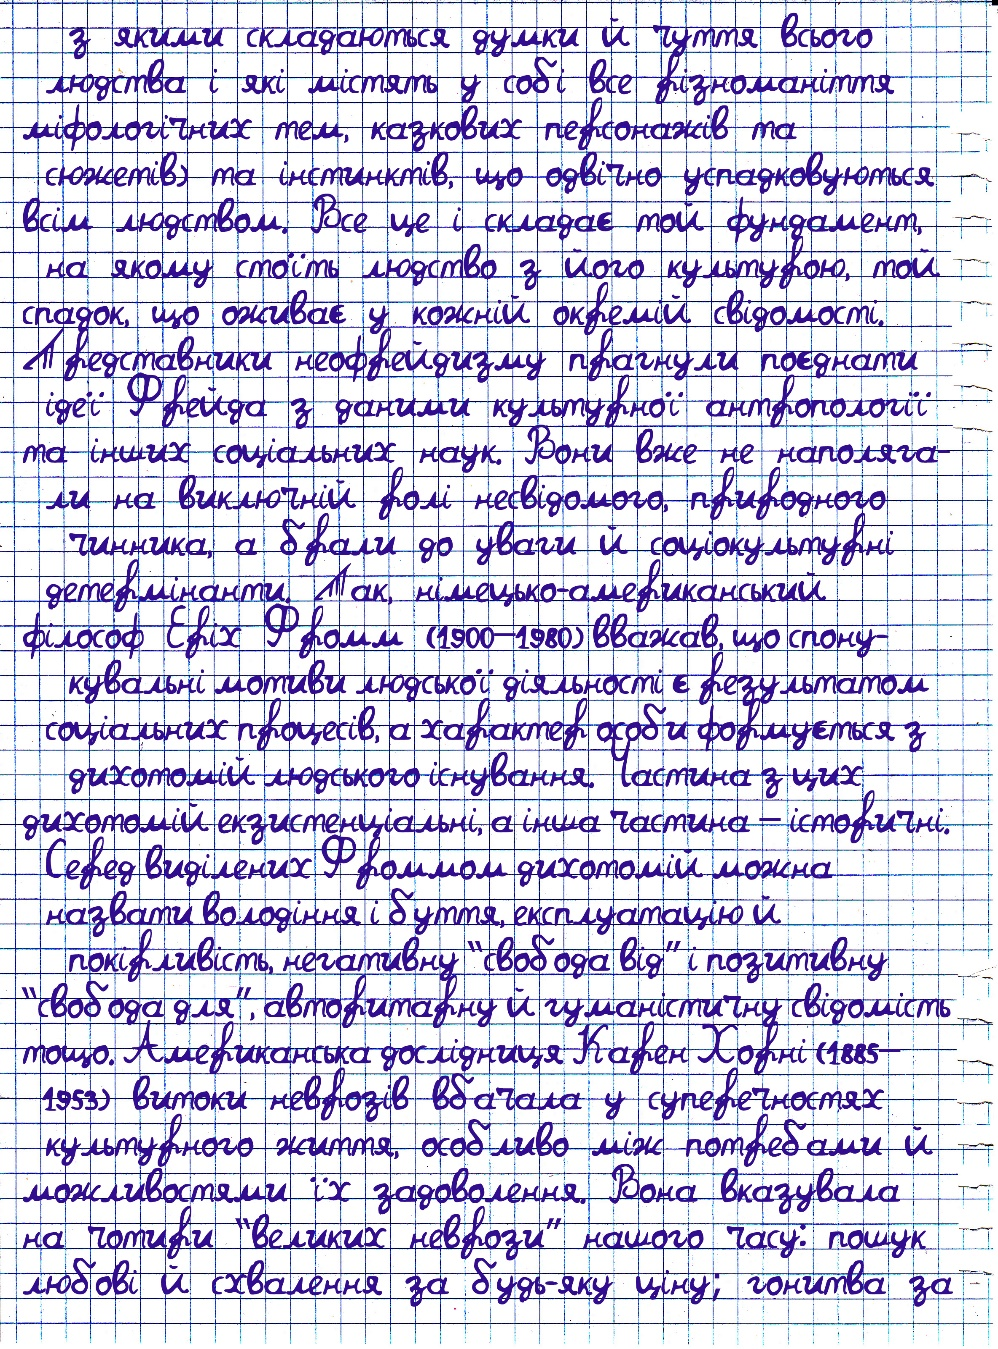 з якими складаються думки й чуття всього
людства і які містять у собі все різноманіття
міфологічних тем, казкових персонажів та
сюжетів) та інстинктів, що одвічно успадковуються
всім людством. Все це і складає той фундамент,
на якому стоїть людство з його культурою, той
спадок, що оживає у кожній окремій свідомості.
Представники неофрейдизму прагнули поєднати
ідеї Фрейда з даними культурної антропології
та інших соціальних наук. Вони вже не наполяга-
ли на виключній ролі несвідомого, природного
чинника, а брали до уваги й соціокультурні
детермінанти. Так, німецько-американський
філософ Еріх Фромм (1900—1980) вважав, що спону-
кувальні мотиви людської діяльності є результатом
соціальних процесів, а характер особи формується з
дихотомій людського існування. Частина з цих
дихотомій екзистенціальні, а інша частина — історичні.
Серед виділених Фроммом дихотомій можна
назвати володіння і буття, експлуатацію й
покірливість, негативну "свобода від" і позитивну
"свобода для", авторитарну й гуманістичну свідомість
тощо. Американська дослідниця Карен Хорні (1885—
1953) витоки неврозів вбачала у суперечностях
культурного життя, особливо між потребами й
можливостями їх задоволення. Вона вказувала
на чотири "великих неврози" нашого часу: пошук
любові й схвалення за будь-яку ціну; гонитва за